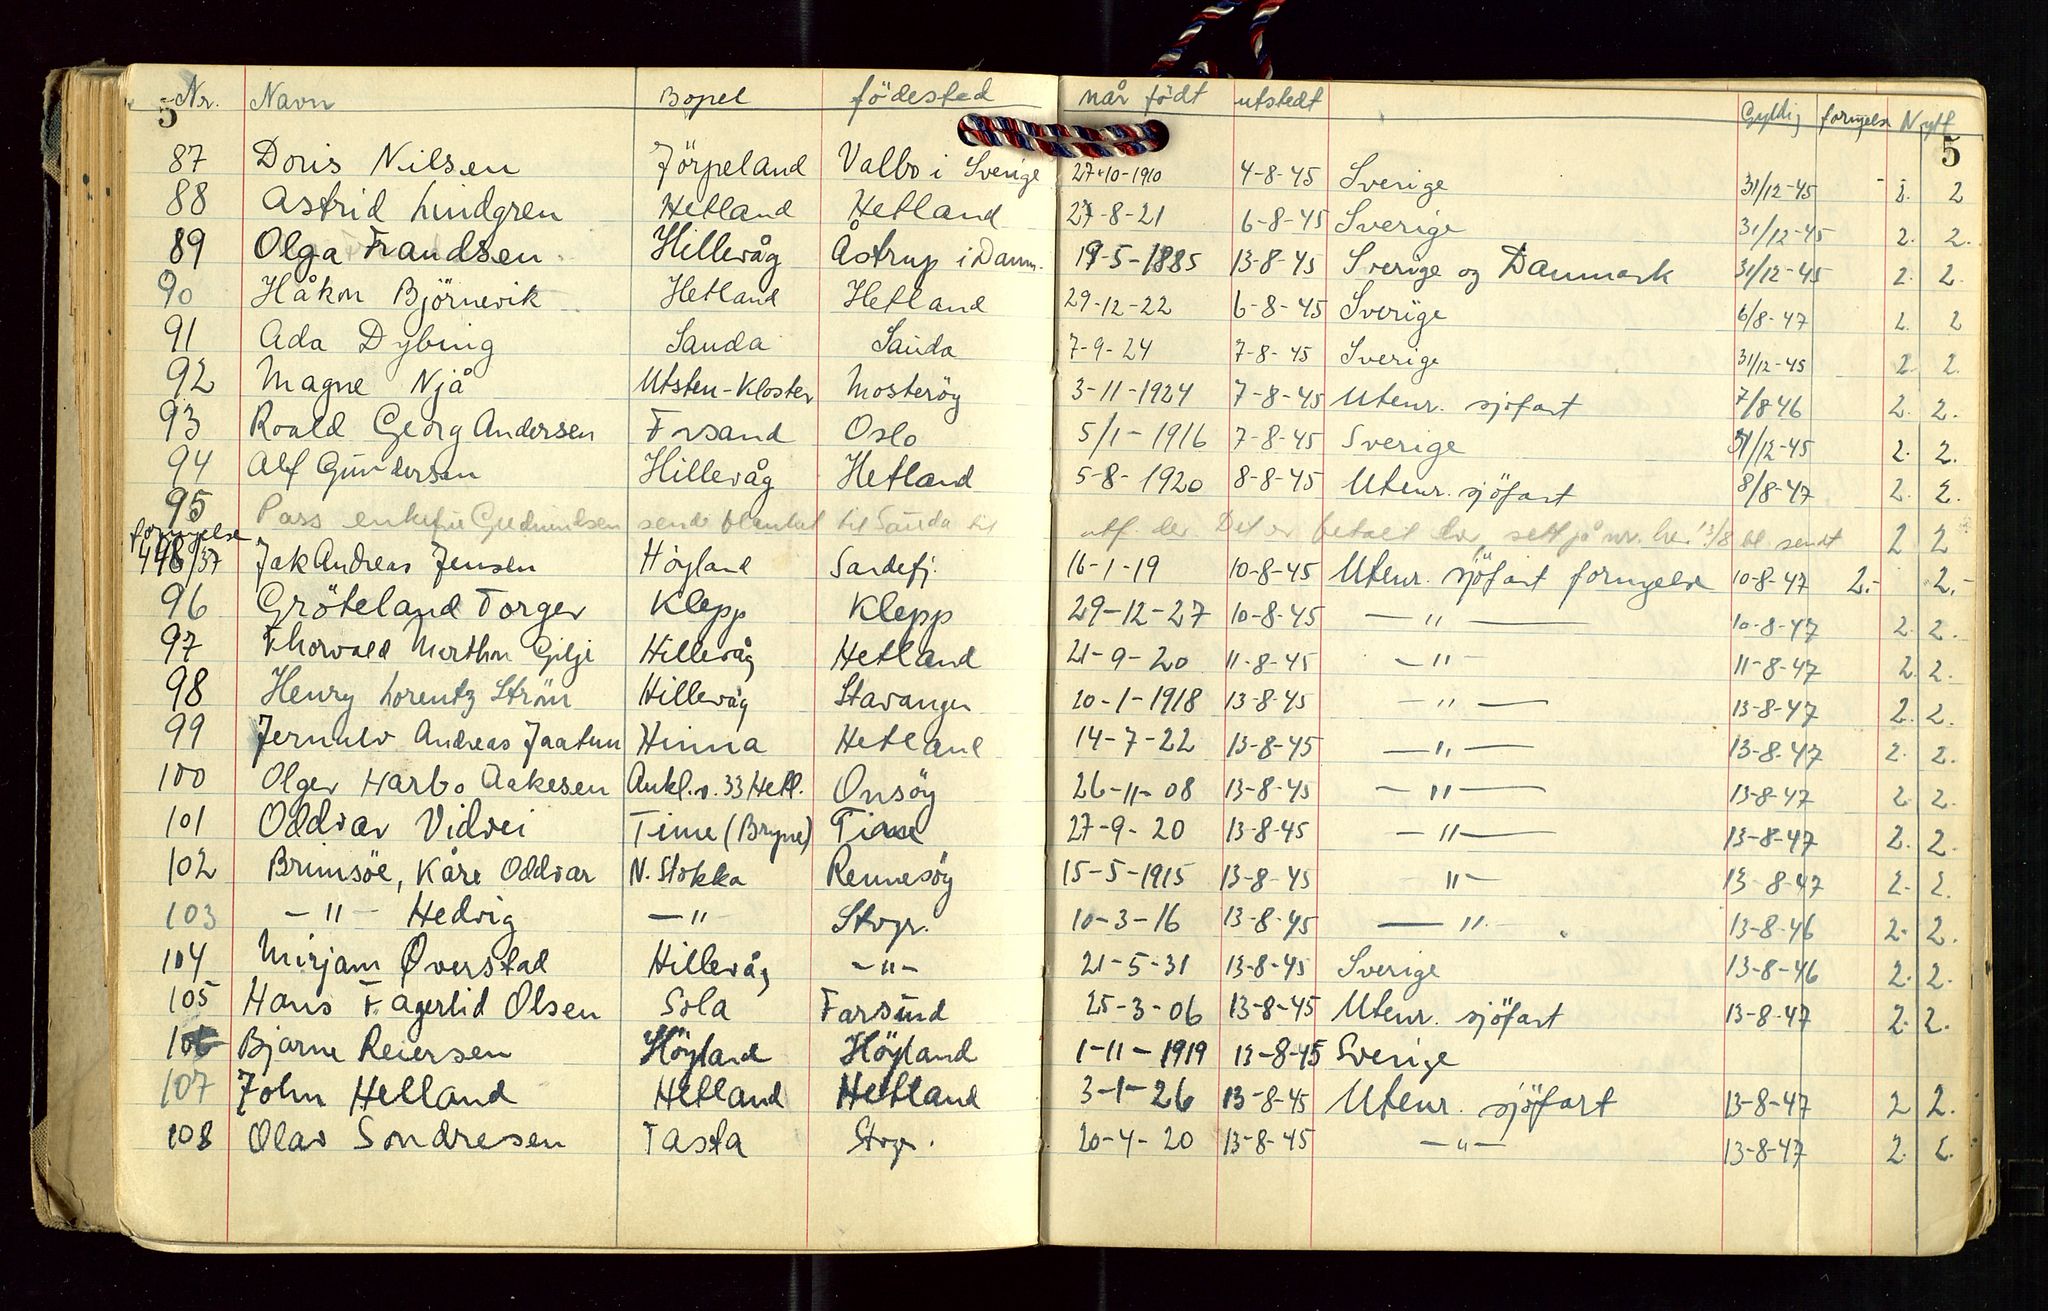 5 Nr. Navn Bopel födested når födt utstedt Gyldig fornyelse Nytt 5
87 Doris Nilsen Jörpeland Valbo i Sverige 27-10-1910 4-8-45 Sverige 31/12-45 2. 2
88 Astrid Lindgren Hetland Hetland 27-8-21 6-8-45 Sverige 31/12-45 2. 2.
89 Olga Frandsen Hillevåg Åstrup i Danm. 19-5-1885 13-8-45 Sverige og Danmark 31/12-45 2. 2.
90 Håkon Björnevik Hetland Hetland 29-12-22 6-8-45 Sverige 6/8-47 2. 2
91 Ada Dybing Sauda Sauda 7-9-24 7-8-45 Sverige 31/12-45 2 2.
92 Magne Njå Utsten-Kloster Mosteröy 3-11-1924 7-8-45 Utenr. sjöfart 7/8 46 2. 2.
93 Roald Georg Andersen Forsand Oslo 5/1-1916 7-8-45 Sverige 31/12-45 2. 2.
94 Alf Gundersen Hillevåg Hetland 5-8-1920 8-8-45 Utenr. sjöfart 8/8-47 2. 2.
95 Pass enkefru Gudmundsen sendt blankat til Sauda til utf. der Det er betalt her sett på nr. her 13/8 bl. sendt 2 2
fornyelse
448/37 Jak Andreas Jensen Höyland Sandefj 16-1-19 10-8-45 Utenr. sjöfart fornyelse 10-8-47 2.- 2.-
96 Gröteland Torger Klepp Klepp 29-12-27 10-8-45 — " — 10-8-47 2. 2.
97 Thorvald Morthon Gilje Hillevåg Hetland 21-9-20 11-8-45 — " — 11-8-47 2. 2.
98 Henry Lorentz Ström Hillevåg Stavanger 20-1-1918 13-8-45 — " — 13-8-47 2. 2.
99 Jernulv Andreas Jaatun Hinna Hetland 14-7-22 13-8-45 — " — 13-8-47 2. 2.
100 Olger Harbo Aakesen Ankl.v. 33 Hetl. Onsöy 26-11-08 13-8-45 — " — 13-8-47 2 2.
101 Oddvar Vidvei Time (Bryne) Time 27-9-20 13-8-45 — " — 13-8-47 2. 2.
102 Brimsöe, Kåre Oddvar N. Stokka Rennesöy 15-5-1915 13-8-45 " — 13-8-47 2. 2.
103 — " — Hedvig — " Stvgr. 10-3-16 13-8-45 — " . 13-8-46 2. 2.
104 Mirjam Øverstad Hillevåg — " — 21-5-31 13-8-45 Sverige 13-8-46 2. 2.
105 Hans Fagerlid Olsen Sola Farsund 25-3-06 13-8-45 Utenr. sjöfart 13-8-47 2. 2.
106 Bjarne Reiersen Höyland Höyland 1-11-1919 13-8-45 Sverige
107 John Helland Hetland Hetland 3-1-26 13-8-45 Utenr. sjöfart 13-8-47 2 2.
108 Olav Sondresen Tasta Stvgr. 20-4-20 13-8-45 — " — 13-8-47 2. 2.